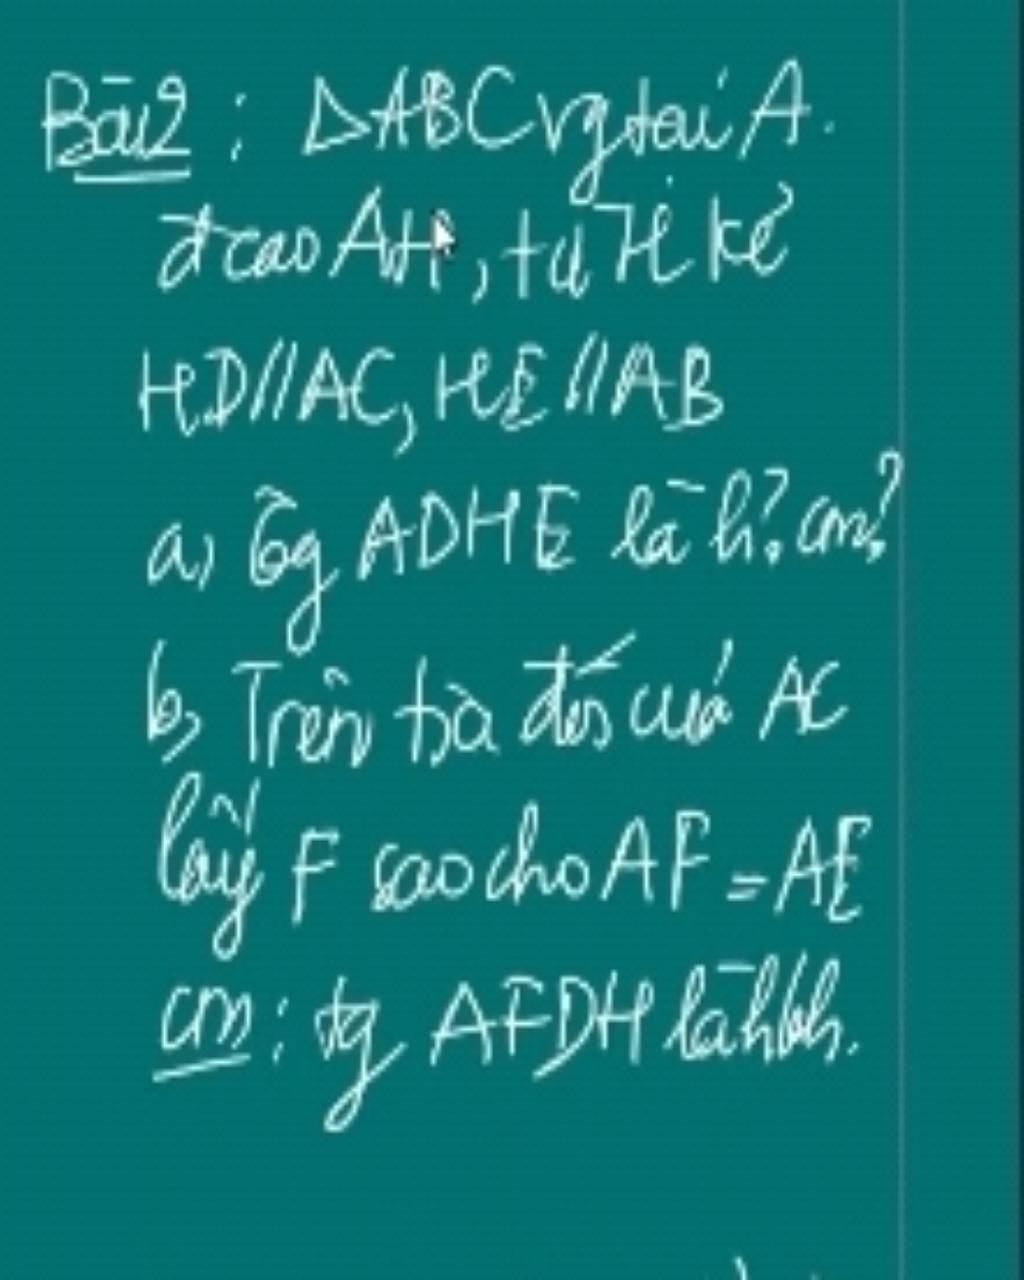 Bài 2 : ΔABC vg tại A.
đcao AH, từ H kẻ
HD//AC, HE//AB
a) tg ADHE là h? cm?
b, Trên tia đối của AC
lấy F sao cho AF = AE
cm : tg AFDH là hbh.